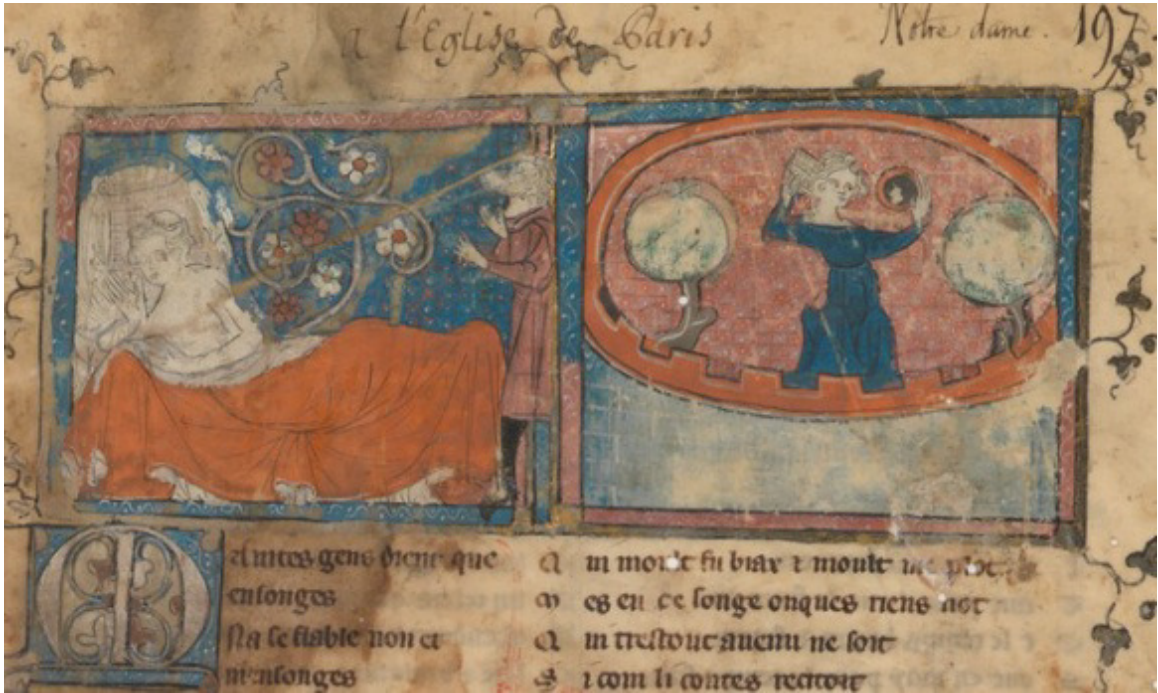 a l'Eglise de Paris
Notre dame. 197.
Maintes gens dient que
ensonges
Na se fiable non et
mensonges
Q ui moult fu biax ⁊ moult me plot
M es en ce songe onques riens not
Q ui trestout auenu ne soit
S i com li contes recitoit